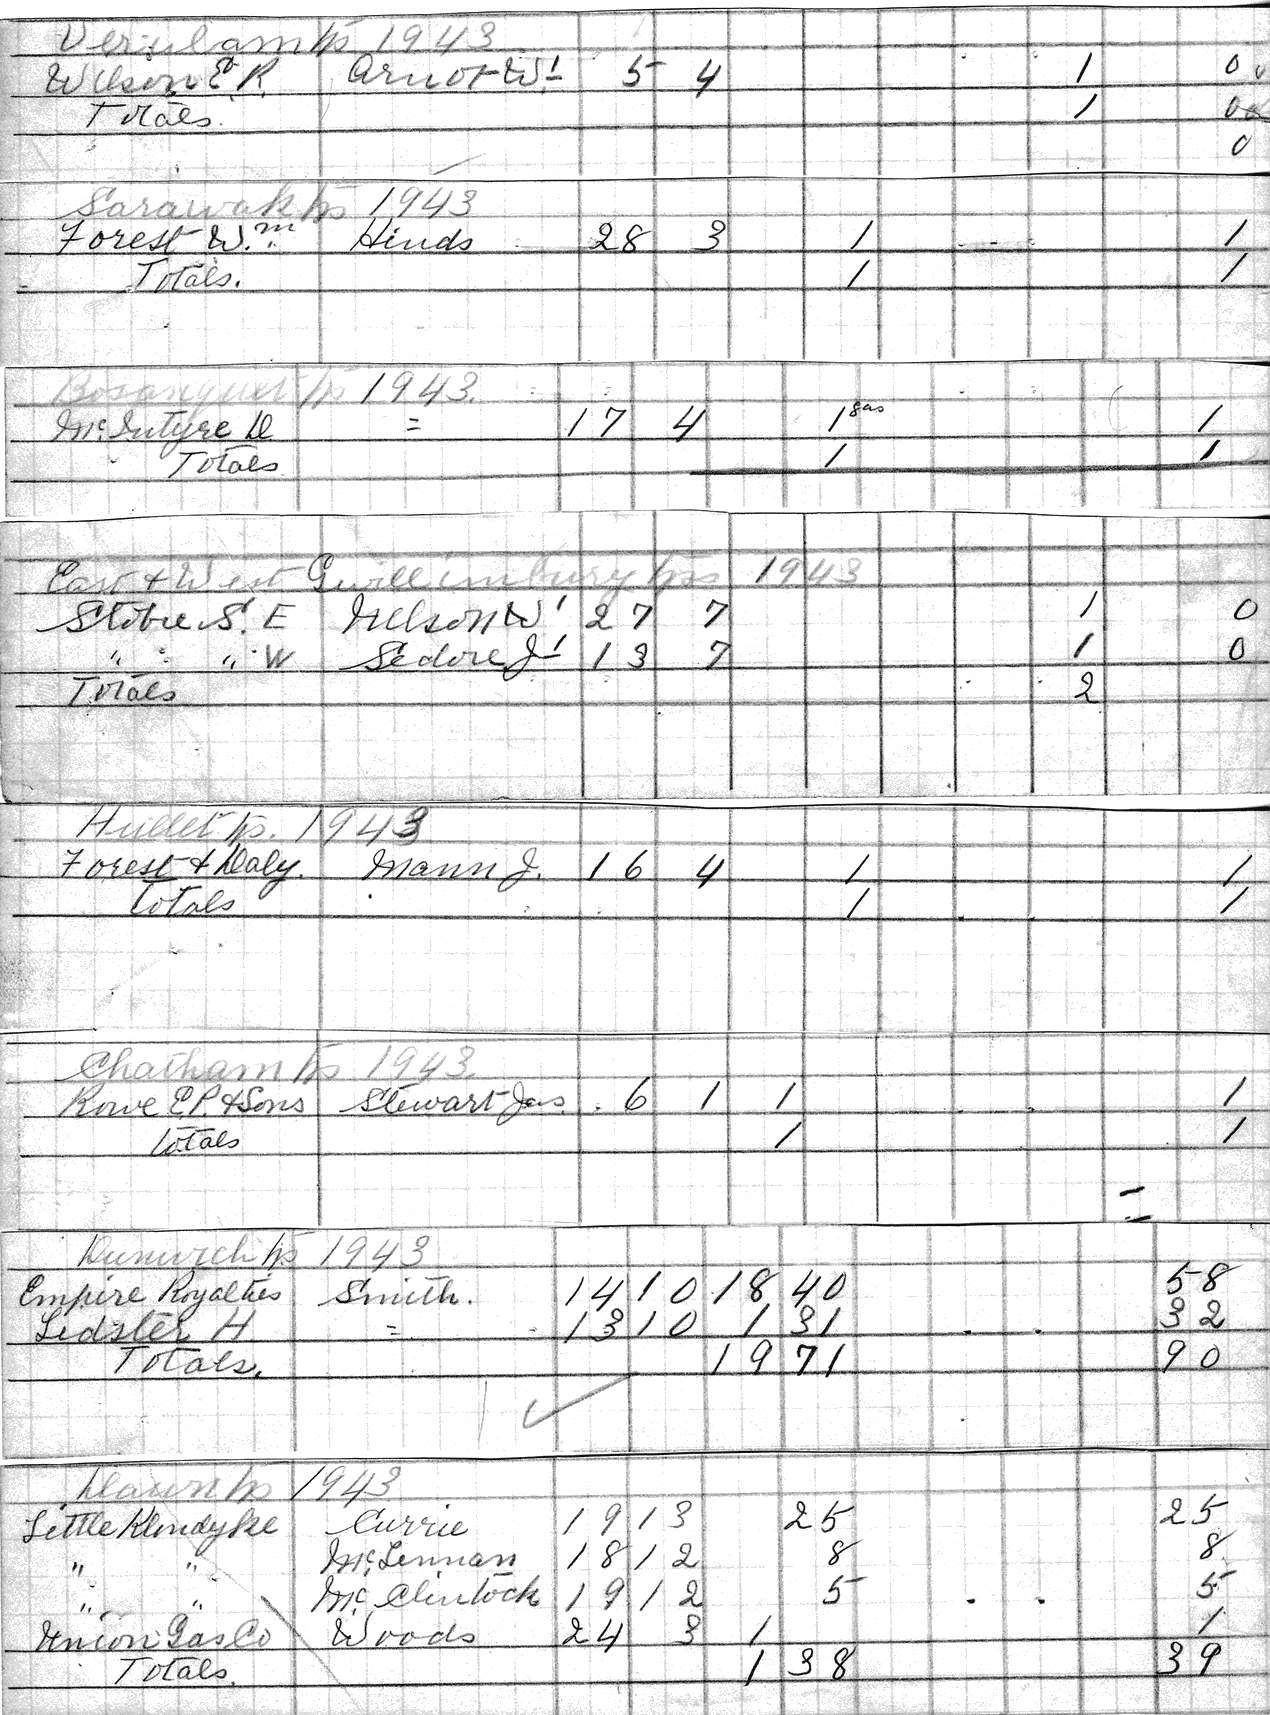 Verulam tp 1943
Wilson E. R. Arnot W! 5 4 1 0
Totals. 1 0
0
Sarawak tp 1943
Forest W.m Hinds 28 3 1 1
Totals. 1 1
Bosanquet tp 1943.
McIntyre D = 17 4 1 gas 1
Totals 1 1
East & West Gwillimbury tps 1943
Stobie S. E Nelson W! 27 7 1 0
" " W Sedore J! 13 7 1 0
Totals 2
Hullet tp. 1943
Forest & Daly. Mann J. 16 4 1 1
Totals 1 1
Chatham tp 1943.
Rowe E P & Sons Stewart Jas. 6 1 1 1
Totals 1 1
Dunwich tp 1943
Empire Royalties Smith. 14 10 18 40 58
Lidster H = 13 10 1 31 32
Totals. 19 71 90
Dawn tp 1943
Little Klondyke Currie 19 13 25 25
" " McLennan 18 12 8 8
" " McClintock 19 12 5 5
Union Gas Co Woods 24 3 1 1
Totals. 1 38 39